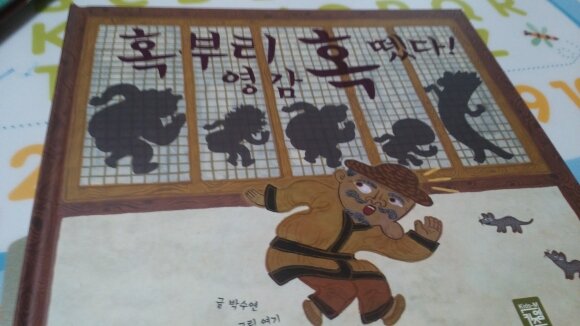 혹부리
영감 혹
뗐다!
글 박수연
그림 여기